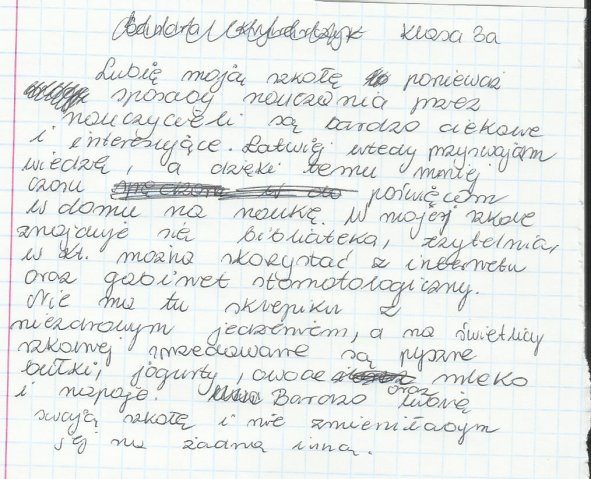 Klasa 3a
Lubię moją szkołę ponieważ
sposoby nauczania przez
nauczycieli są bardzo ciekawe
i interesujące. Łatwiej wtedy przyswajam
wiedzę, a dzięki temu mniej
czasu poświęcam
w domu na naukę. W mojej szkole
znajduje się biblioteka, czytelnia,
w kt. można skorzystać z internetu
oraz gabinet stomatologiczny.
Nie ma tu sklepiku z
niezdrowym jedzeniem, a na świetlicy
szkolnej sprzedawane są pyszne
bułki, jogurty, owoce oraz mleko
i napoje. Bardzo lubię
swoją szkołę i nie zmieniłabym
jej na żadną inną.